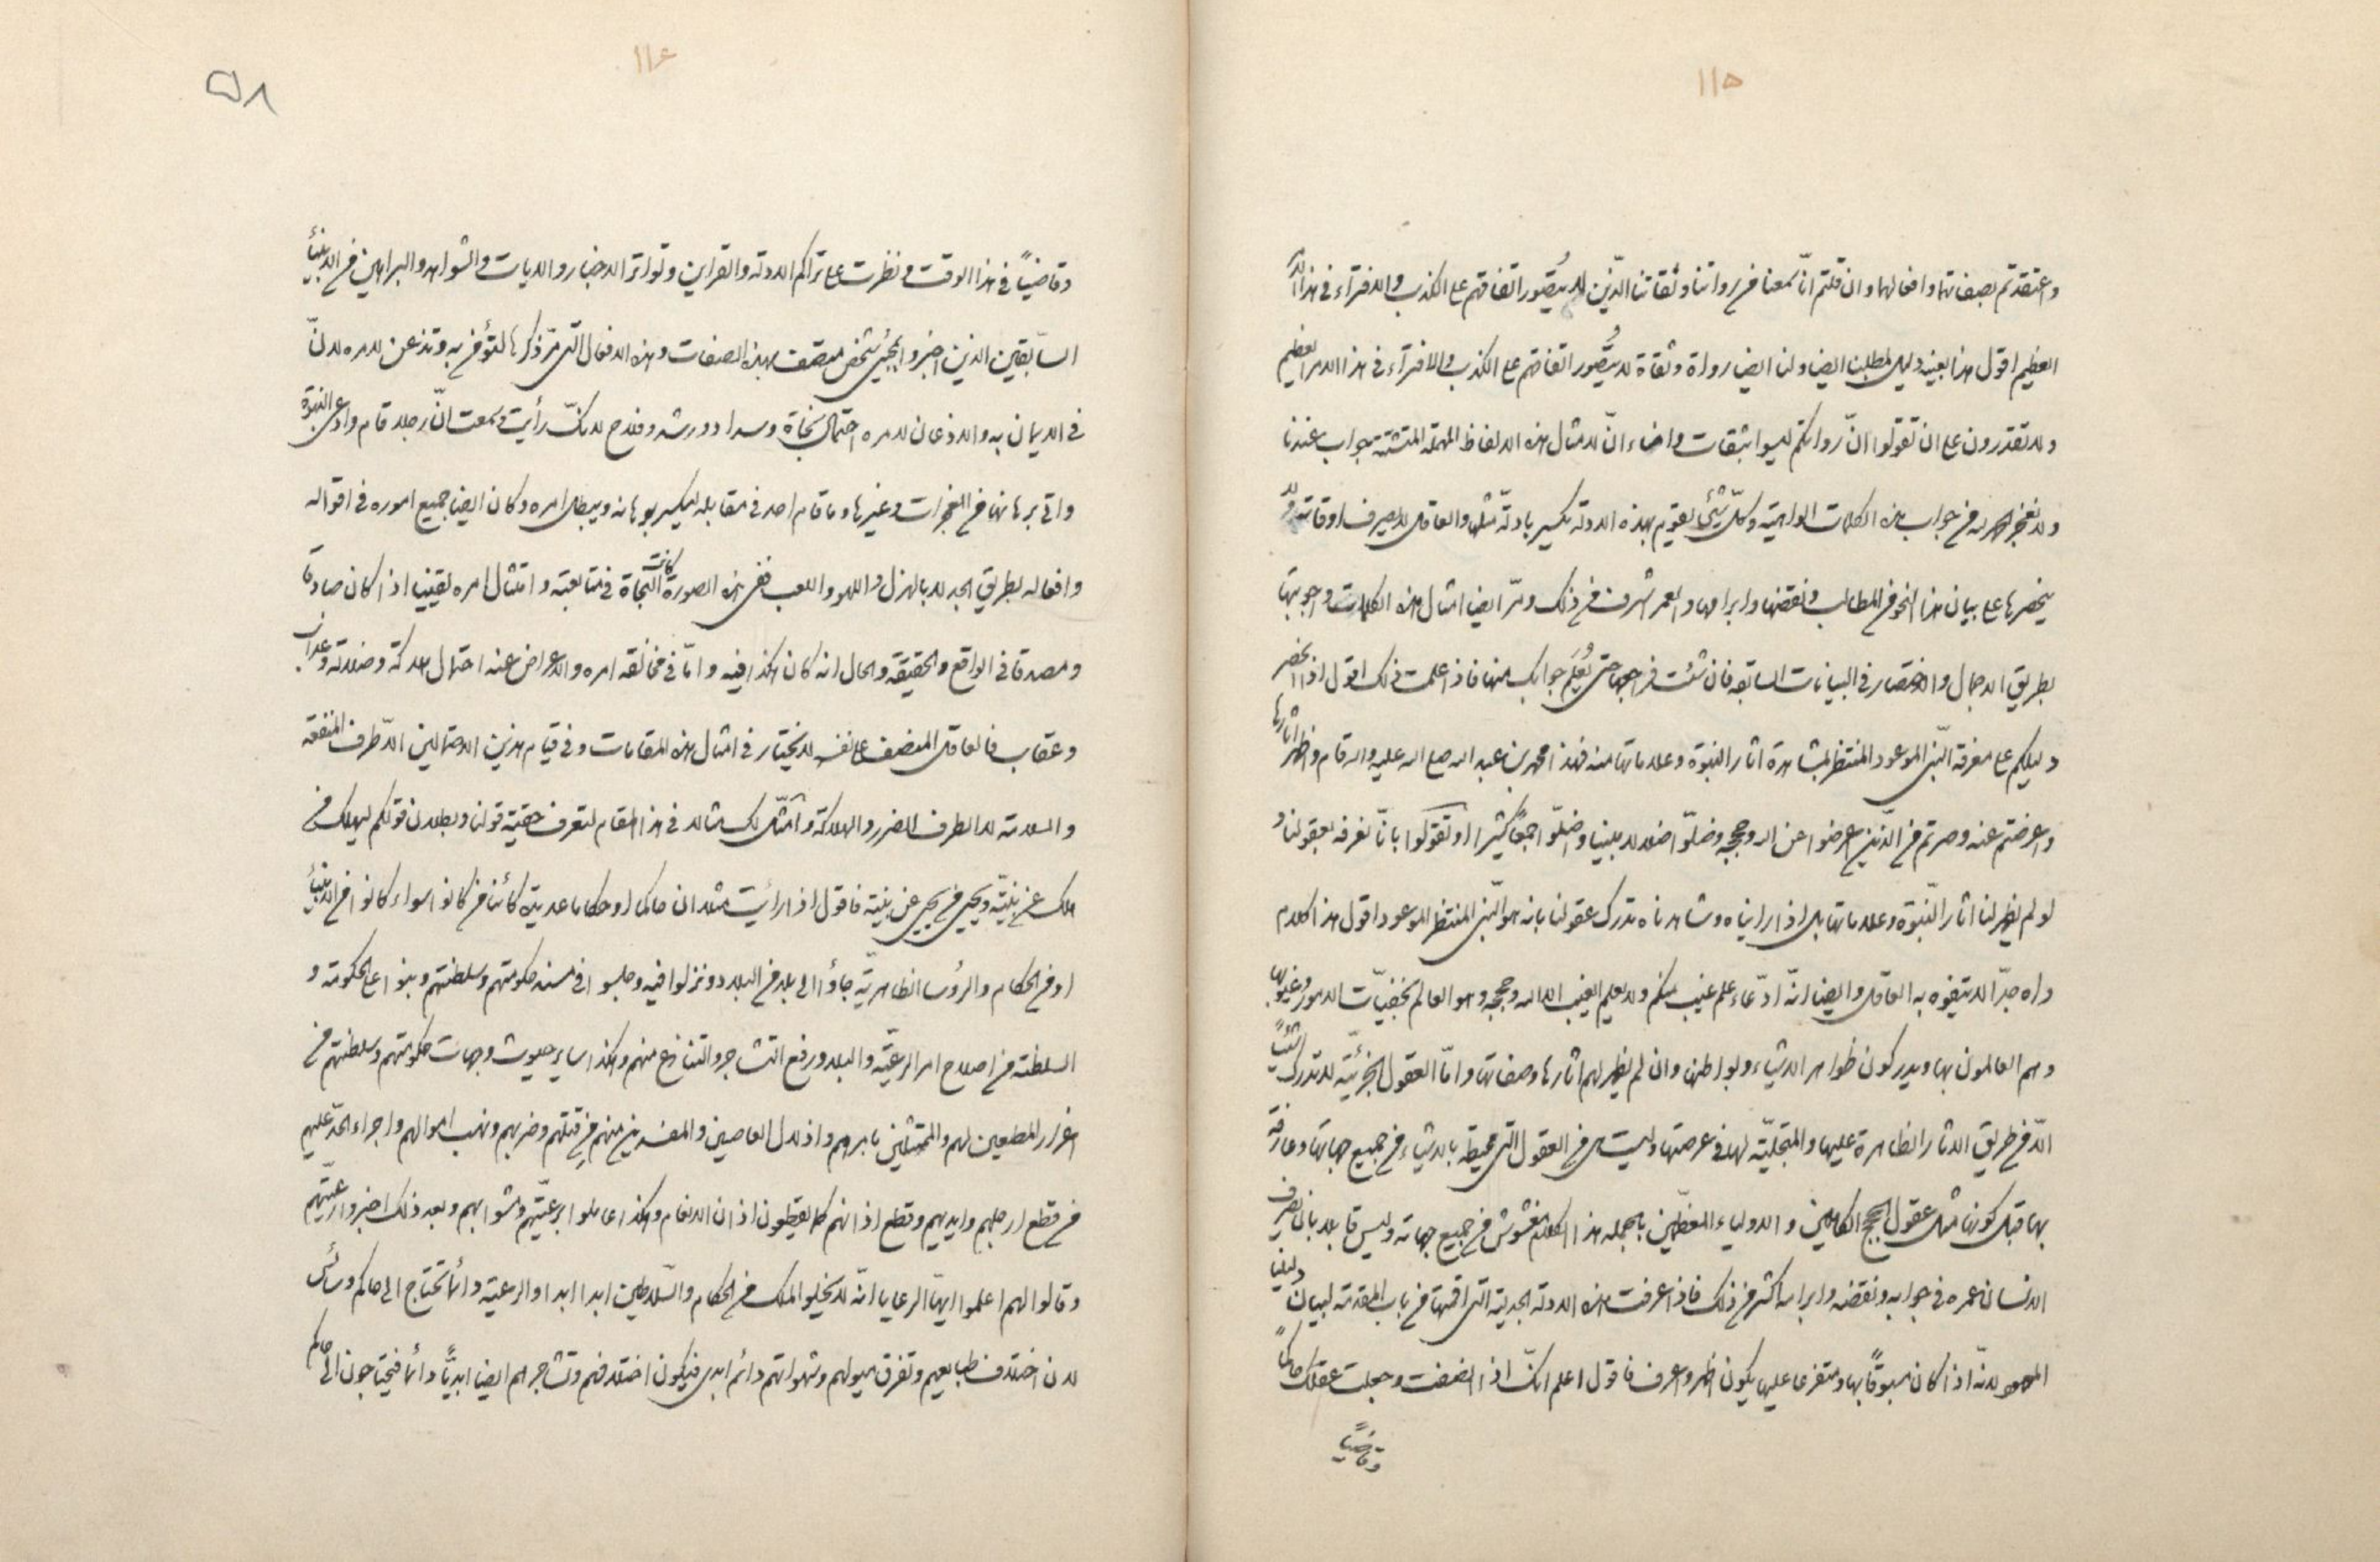 ١١٥
واعتقدتم بصفاتها وافعالها وان قلتم انّا سمعنا من رواتنا وثقاتنا الذّين لا يتصُوّر اتفاقهم على الكذب والافترآء فى هذا الامر
العظيم اقول هذا بعينه دليل لمطلبنا ايضا ولنا ايضا رواة وثقاة لا يتصُوّر اتفاقهم على الكذب والافترآء فى هذا الامر العظيم
ولا تقدرون على ان تقولوا انّ رواتكم ليسوا بثقات وامناء انّ لامثال هذه الالفاظ المهملة المتشتتة جواب عندنا
ولا نعجز بحمد الله من جواب هذه الكلمات الواهية وكلّ شئ يقوم بهذه الادلة يكسر بادلّة مثلها والعاقل لا يصرف اوقاته ولا
يحصرها على بيان هذا النحو من المطالب ونقضها وابرامها والعمر اشرف من ذلك ومرّ ايضا امثال هذه الكلمات واجوبتها
بطريق الاجمال والاختصار فى البيانات السابقة فان شئت فراجعها حتى تعُلم جوابك منها فاذا علمت ذلك اقول اذا انحصر
دليلكم على معرفة النّبى الموعود المنتظر بمشاهدة اثار النبوة وعلاماتها منه فهذا محمد بن عبد الله صلى الله عليه واله قام وظهر اثارها
واعرضتم عنه وصرتم من الّذين اعرضوا عن الله وحججه وضلّوا ضلالا مبينا واضلّوا جمعًا كثيرا او تقولوا بانّا نعرفه بعقولنا و
لو لم يظهر لنا اثار النّبوة وعلاماتها بل اذا رايناه وشاهدناه تدرك عقولنا بانه هو النّبى المنتظر الموعود اقول هذا كلام
واه جدّا لا يتفوه به العاقل وايضا انّه ادّعاء علم غيب منكم ولا يعلم الغيب الا الله وحججه وهو العالم بخفيّات الامور وغيوبها
وهم العالمون بها ويدركون ظواهر الاشياء وبواطنها وان لم يظهر لهم اثارها وصفاتها وامّا العقول الجزئيّة لا تدرك شيئًا
الّا من طريق الاثار الظاهرة عليها والمتجليّة لها فى عرصتها وليست هى من العقول التى محيطة بالاشياء من جميع جهاتها وعارفة
بها قبل كونها مثل عقول الحجج الكاملين والاولياء المعظّمين بالجملة هذا الكلام مغشوش من جميع جهاته وليس قابلا بان يصرف
الانسان عمره فى جوابه ونقضه وابرامه اكثر من ذلك فاذا عرفت هذه الادلة الجدلية التى اقمتها من باب المقدمة لبيان دليلنا
لانّه اذا كان مسبوقًا بها ومتفرعا عليها يكون اظهر واعرف فاقول اعلم انكّ اذا انصفت وجعلت عقلك حاكمًا
وقاضيًا
١١٦
٥٨
وقاضيًا فى هذا الوقت ونظرت على تراكم الادلة والقراين وتواتر الاخبار والايات والشواهد والبراهين من الانبيآء
السّابقين الذين اخبروا بمجيئ شخص متصف بهذه الصفات وهذه الافعال التّى مرّ ذكرها لتؤمن به وتذعن لامره لانّ
فى الايمان به والاذعان لامره احتمال نجاة وسداد ورشد وفلاح لانكّ رأيت وسمعت انّ رجلا قام وادعى النبوة
واتى برهانها من المعجزات وغيرها وما قام احد فى مقابله ليكسر برهانه ويبطل امره وكان ايضا جميع اموره فى اقواله
وافعاله بطريق الجد لا بالهزل واللهو واللعب ففى هذه الصورة كانت النجاة فى متابعته وامتثال امره يقينيا اذا كان صادقا
ومصدقا فى الواقع والحقيقة والحال انه كان هكذا فيه وامّا فى مخالفة امره والاعراض عنه احتمال هلاكة وضلالة وعذاب
وعقاب فالعاقل المنصف على نفسه لا يختار فى امثال هذه المقامات وفى قيام هذين الاحتمالين الاّ طرف المنفعة
والسلامة لا الطرف الضرر والهلاكة وامثّل لك مثالا فى هذا المقام لتعرف حقية قولنا وبطلان قولكم ليهلك من
هلك عن بيّنة ويحيى من يحيى عن بيّنة فاقول اذا رأيت مثلا ان حاكما او حكاما عديدة كائنا من كانوا سواء كانوا من الانبيآء
او من الحكام والرؤسا الظاهريّة جاؤا الى بلد من البلاد ونزلوا فيه وجلسوا فى مسند حكومتهم وسلطنتهم وبنوا على الحكومة و
السلطنة من اصلاح امر الرعيّة والبلاد ورفع التشاجر والتنازع منهم وهكذا ساير حيوث وجهات حكومتهم وسلطنتهم من
اعزاز المطيعين لهم والممتثلين بامرهم واذلال العاصين والمفسدين منهم من قتلهم وضربهم ونهب اموالهم واجراء الحدّ عليهم
من قطع ارجلهم وايديهم وقطع اذانهم كما يقطعون اذان الانعام وهكذا عاملوا برعيّتهم ومشوا بهم وبعد ذلك اخبروا رعيّتهم
وقالوا لهم اعلموا ايهّا الرعايا انّه لا يخلو الملك من الحكام والسّلاطين ابدا ابدا والرعية دائما تحتاج الى حاكم وسائس
لان اختلاف طبايعهم وتفرق ميولهم وشهواتهم دائم ابدى فيكون اختلافهم وتشاجرهم ايضا ابديًّا دائما فيحتاجون الى حاكم